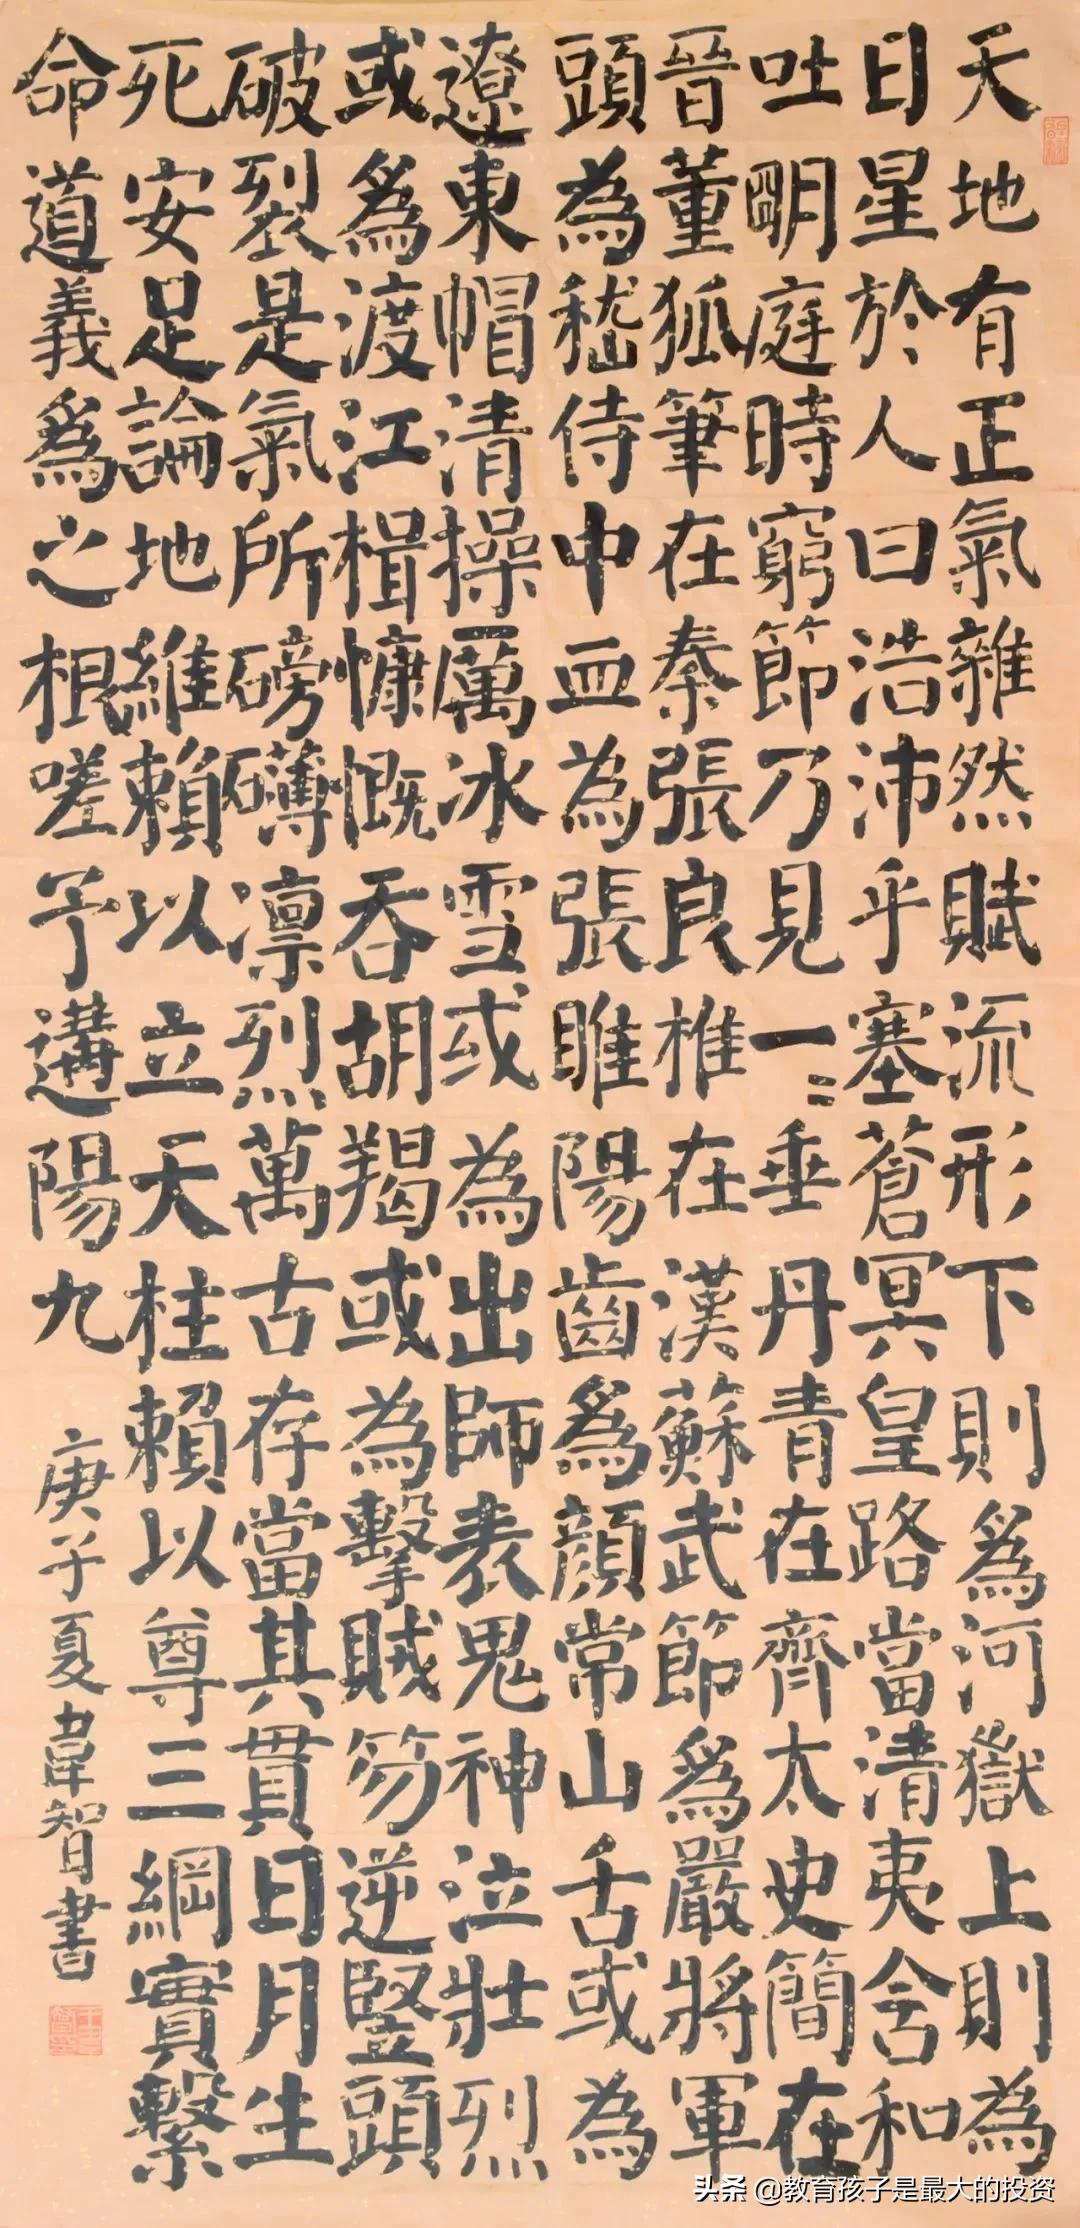 天地有正氣雜然賦流形下則爲河嶽上則為
日星於人曰浩沛乎塞蒼冥皇路當清夷含和
吐明庭時窮節乃見一二垂丹青在齊太史簡在
晉董狐筆在秦張良椎在漢蘇武節爲嚴將軍
頭為嵇侍中血為張睢陽齒爲顏常山舌或為
遼東帽清操厲冰雪或為出師表鬼神泣壯烈
或爲渡江楫慷慨吞胡羯或為擊賊笏逆豎頭
破裂是氣所磅礴凛烈萬古存當其貫日月生
死安足論地維賴以立天柱賴以尊三綱實繫
命道義爲之根嗟予遘陽九
庚子夏韋智書
头条 @教育孩子是最大的投资